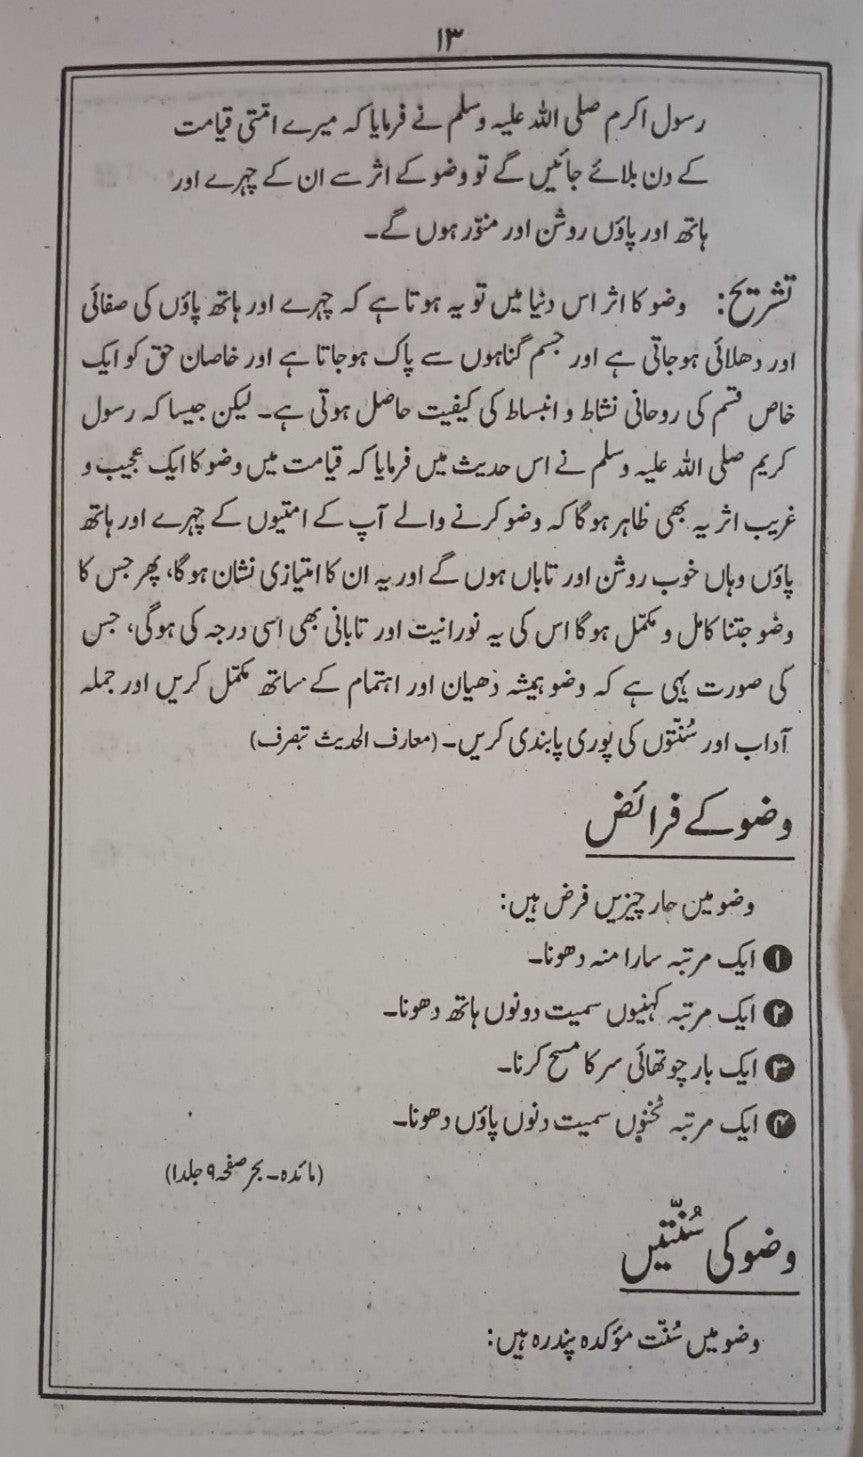 ۱۳
رسول اکرم صلی اللہ علیہ وسلم نے فرمایا کہ میرے امتی قیامت
کے دن بلائے جائیں گے تو وضو کے اثر سے ان کے چہرے اور
ہاتھ اور پاؤں روشن اور منوّر ہوں گے۔
تشریح: وضو کا اثر اس دنیا میں تو یہ ہوتا ہے کہ چہرے اور ہاتھ پاؤں کی صفائی
اور دھلائی ہوجاتی ہے اور جسم گناہوں سے پاک ہوجاتا ہے اور خاصان حق کو ایک
خاص قسم کی روحانی نشاط و انبساط کی کیفیت حاصل ہوتی ہے۔ لیکن جیسا کہ رسول
کریم صلی اللہ علیہ وسلم نے اس حدیث میں فرمایا کہ قیامت میں وضو کا ایک عجیب و
غریب اثر یہ بھی ظاہر ہوگا کہ وضو کرنے والے آپ کے امتیوں کے چہرے اور ہاتھ
پاؤں وہاں خوب روشن اور تاباں ہوں گے اور یہ ان کا امتیازی نشان ہوگا، پھر جس کا
وضو جتنا کامل و مکمّل ہوگا اس کی یہ نورانیت اور تابانی بھی اسی درجہ کی ہوگی، جس
کی صورت یہی ہے کہ وضو ہمیشہ دھیان اور اہتمام کے ساتھ مکمّل کریں اور جملہ
آداب اور سُنّتوں کی پوری پابندی کریں۔ (معارف الحدیث تبصرف)
وضو کے فرائض
وضو میں چار چیزیں فرض ہیں:
۱ ایک مرتبہ سارا منہ دھونا۔
۲ ایک مرتبہ کہنیوں سمیت دونوں ہاتھ دھونا۔
۳ ایک بار چوتھائی سر کا مسح کرنا۔
۴ ایک مرتبہ ٹخنوں سمیت دنوں پاؤں دھونا۔
(مائدہ۔ بحر صفحہ ۹ جلد ۱)
وضو کی سُنّتیں
وضو میں سُنّت مؤکدہ پندرہ ہیں: